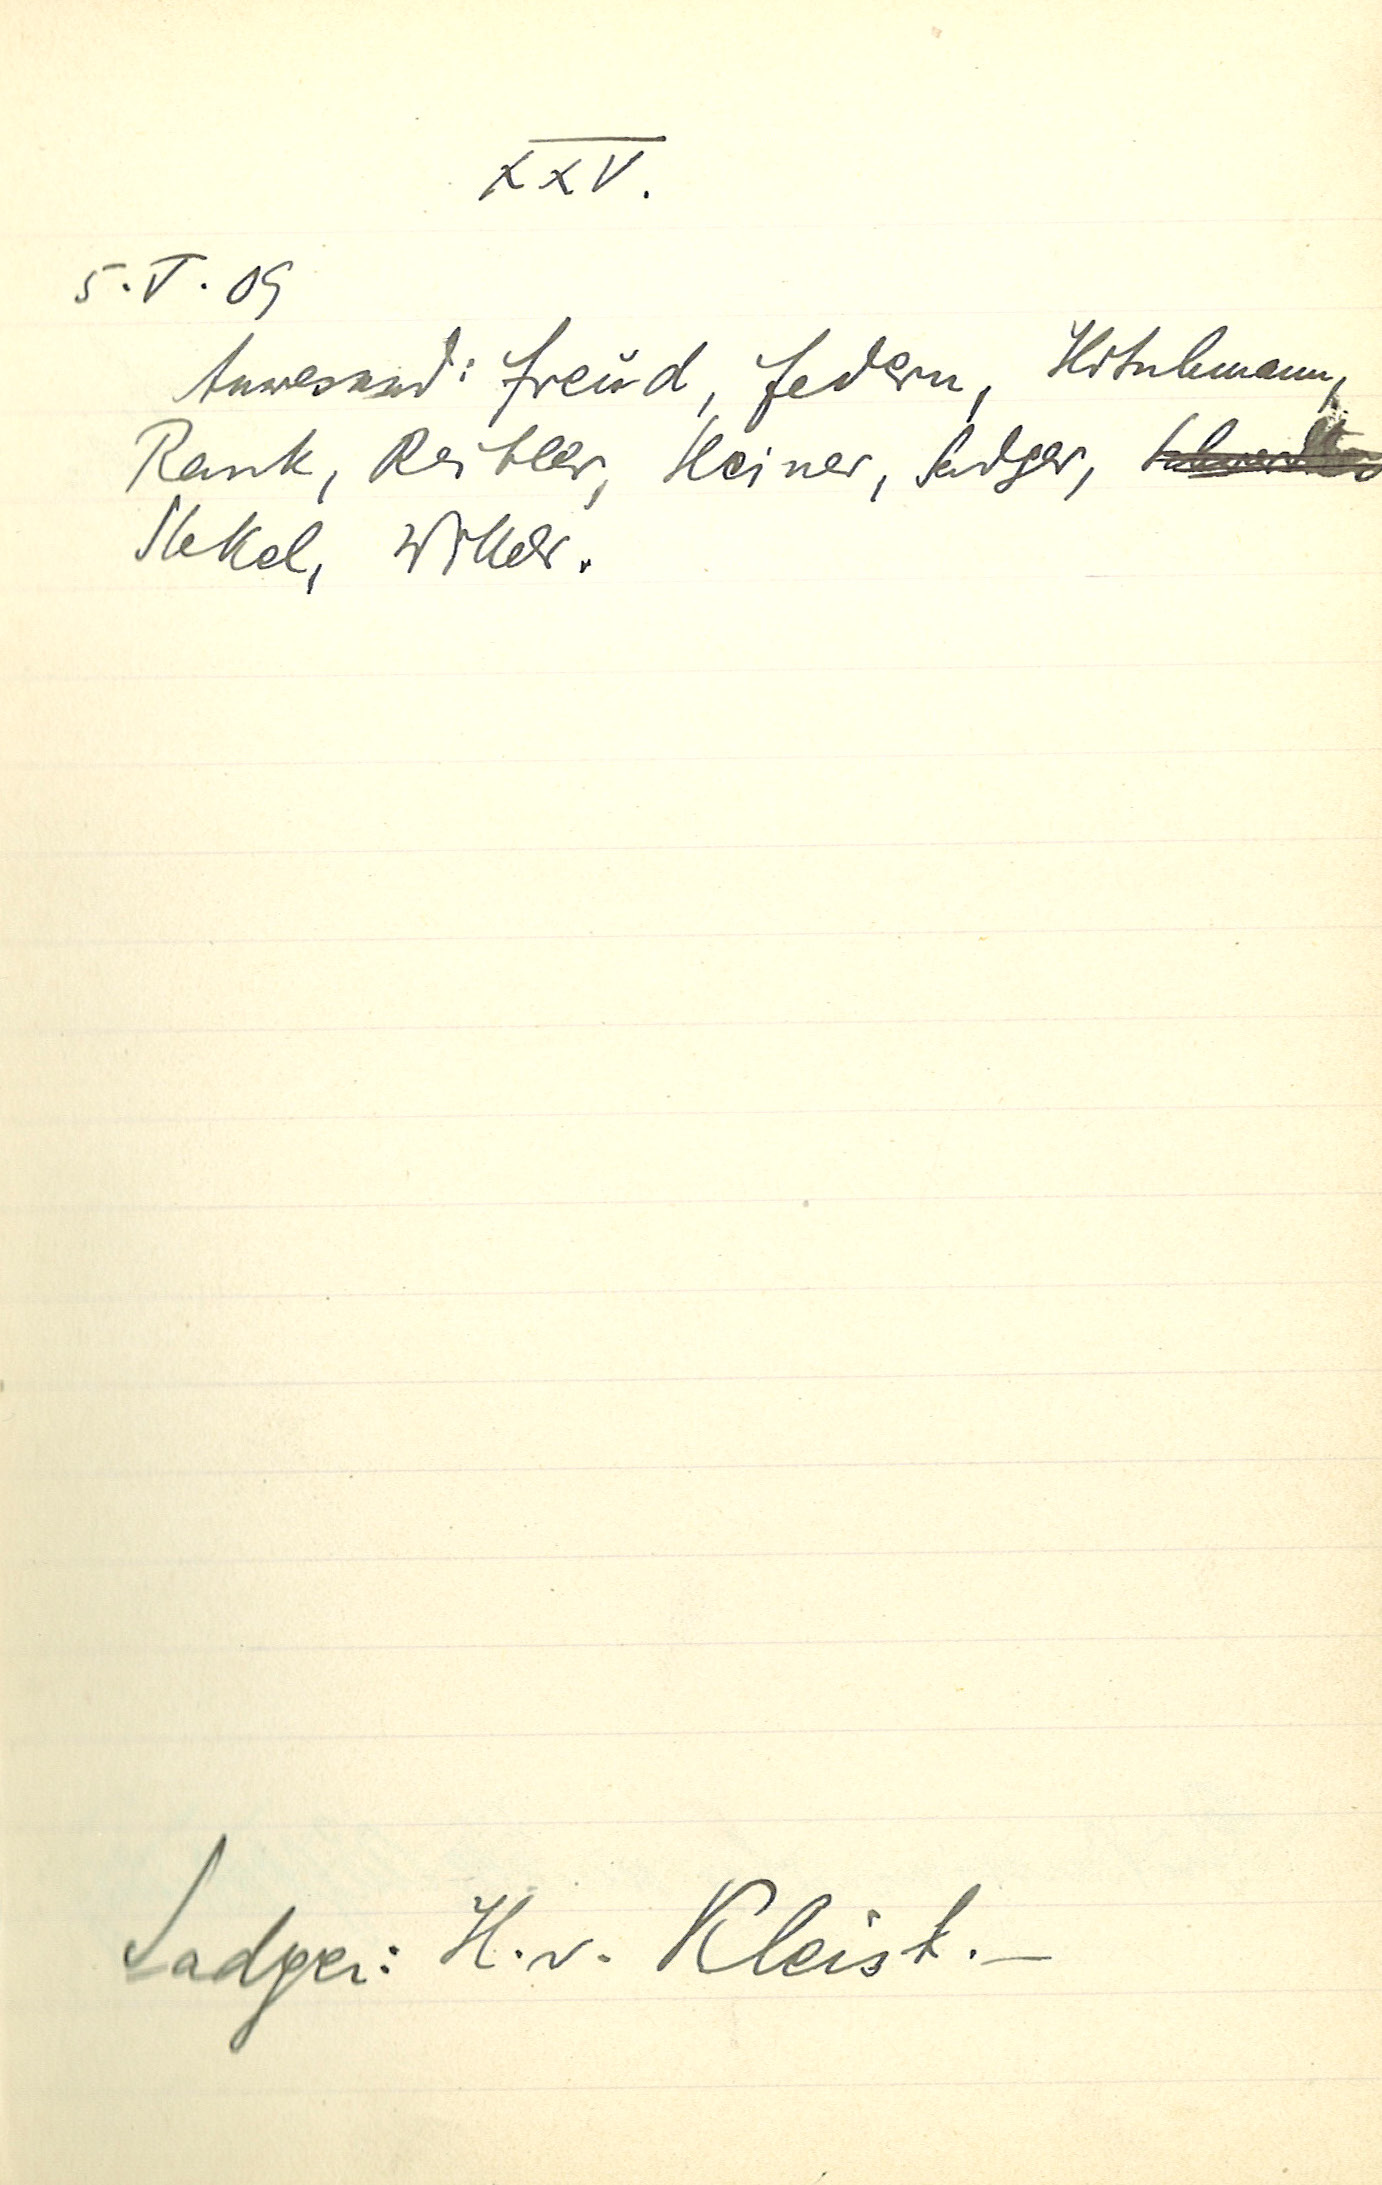 XXV.
5. V. 09
Anwesend: Freud, Federn, Hitschmann,
Rank, Reitler, Steiner, Sadger,
Stekel, Wittels.
Sadger: H. v. Kleist. —